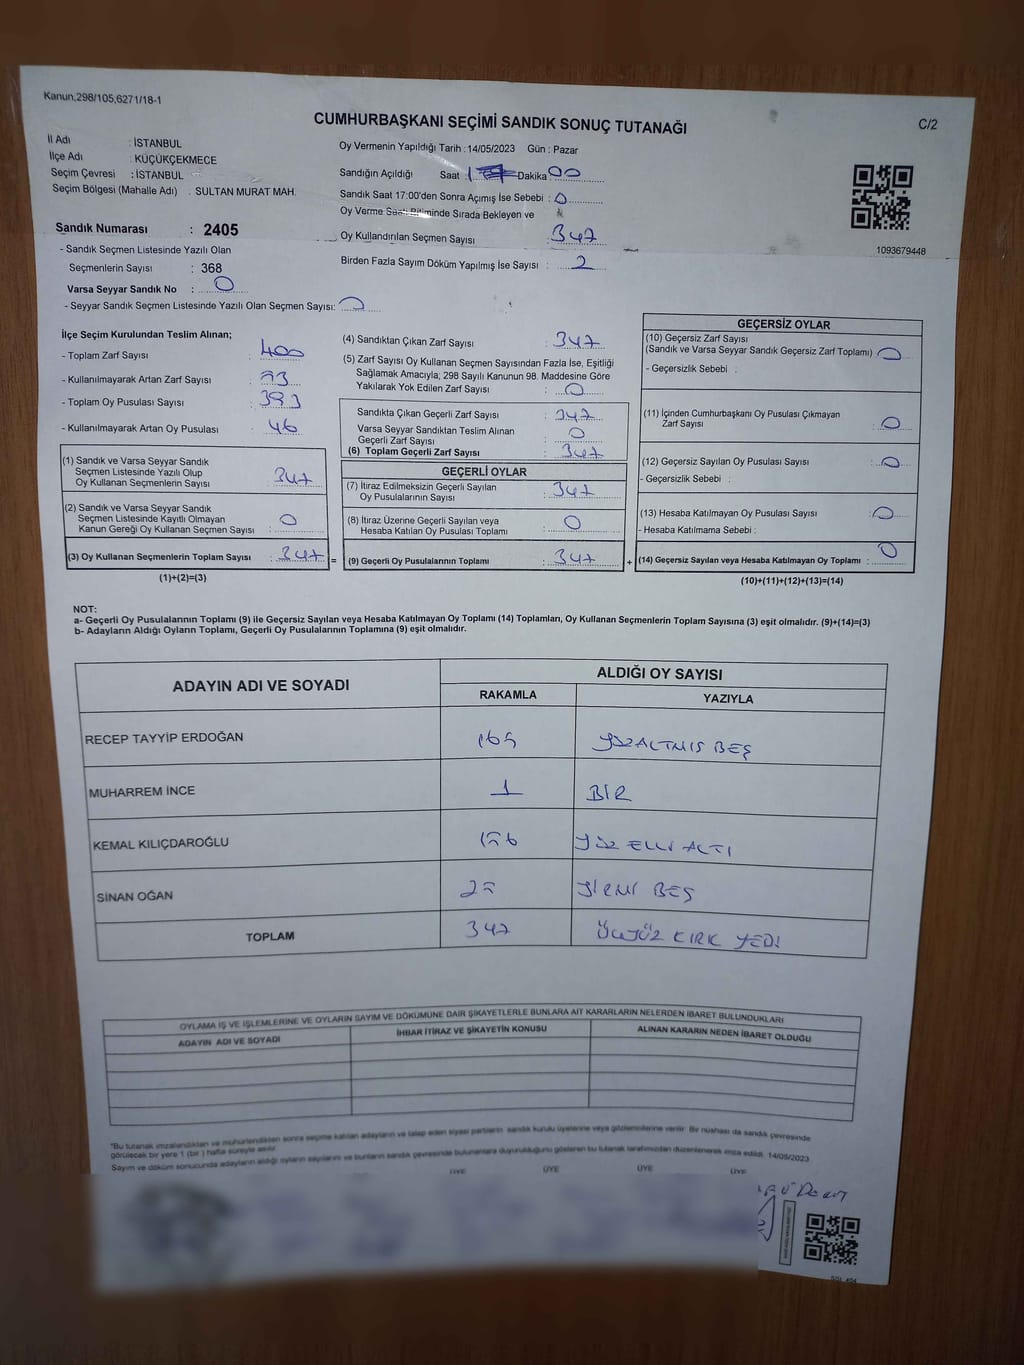 Kanun.298/105,6271/18-1
C/2
CUMHURBAŞKANI SEÇİMİ SANDIK SONUÇ TUTANAĞI
İl Adı : İSTANBUL
İlçe Adı : KÜÇÜKÇEKMECE
Seçim Çevresi : İSTANBUL
Seçim Bölgesi (Mahalle Adı) : SULTAN MURAT MAH.
Sandık Numarası : 2405
- Sandık Seçmen Listesinde Yazılı Olan
Seçmenlerin Sayısı : 368
Varsa Seyyar Sandık No : 0
- Seyyar Sandık Seçmen Listesinde Yazılı Olan Seçmen Sayısı: 0
Oy Vermenin Yapıldığı Tarih :14/05/2023 Gün : Pazar
Sandığın Açıldığı Saat : Dakika 00
Sandık Saat 17:00'den Sonra Açımış İse Sebebi : 0
Oy Verme Saati Bitiminde Sırada Bekleyen ve
Oy Kullandırılan Seçmen Sayısı : 347
Birden Fazla Sayım Döküm Yapılmış İse Sayısı : 2
1093679448
İlçe Seçim Kurulundan Teslim Alınan;
- Toplam Zarf Sayısı : 400
- Kullanılmayarak Artan Zarf Sayısı :
- Toplam Oy Pusulası Sayısı : 393
- Kullanılmayarak Artan Oy Pusulası : 46
(1) Sandık ve Varsa Seyyar Sandık
Seçmen Listesinde Yazılı Olup
Oy Kullanan Seçmenlerin Sayısı : 347
(2) Sandık ve Varsa Seyyar Sandık
Seçmen Listesinde Kayıtlı Olmayan
Kanun Gereği Oy Kullanan Seçmen Sayısı : 0
(3) Oy Kullanan Seçmenlerin Toplam Sayısı : 347 =
(1)+(2)=(3)
(4) Sandıktan Çıkan Zarf Sayısı : 347
(5) Zarf Sayısı Oy Kullanan Seçmen Sayısından Fazla İse, Eşitliği
Sağlamak Amacıyla; 298 Sayılı Kanunun 98. Maddesine Göre
Yakılarak Yok Edilen Zarf Sayısı : 0
Sandıkta Çıkan Geçerli Zarf Sayısı : 347
Varsa Seyyar Sandıktan Teslim Alınan
Geçerli Zarf Sayısı : 0
(6) Toplam Geçerli Zarf Sayısı : 347
GEÇERLİ OYLAR
(7) İtiraz Edilmeksizin Geçerli Sayılan
Oy Pusulalarının Sayısı : 347
(8) İtiraz Üzerine Geçerli Sayılan veya
Hesaba Katılan Oy Pusulası Toplamı : 0
(9) Geçerli Oy Pusulalarının Toplamı : 347 +
GEÇERSİZ OYLAR
(10) Geçersiz Zarf Sayısı
(Sandık ve Varsa Seyyar Sandık Geçersiz Zarf Toplamı) : 0
- Geçersizlik Sebebi :
(11) İçinden Cumhurbaşkanı Oy Pusulası Çıkmayan
Zarf Sayısı : 0
(12) Geçersiz Sayılan Oy Pusulası Sayısı : 0
- Geçersizlik Sebebi :
(13) Hesaba Katılmayan Oy Pusulası Sayısı : 0
- Hesaba Katılmama Sebebi :
(14) Geçersiz Sayılan veya Hesaba Katılmayan Oy Toplamı : 0
(10)+(11)+(12)+(13)=(14)
NOT:
a- Geçerli Oy Pusulalarının Toplamı (9) ile Geçersiz Sayılan veya Hesaba Katılmayan Oy Toplamı (14) Toplamları, Oy Kullanan Seçmenlerin Toplam Sayısına (3) eşit olmalıdır. (9)+(14)=(3)
b- Adayların Aldığı Oyların Toplamı, Geçerli Oy Pusulalarının Toplamına (9) eşit olmalıdır.
ADAYIN ADI VE SOYADI
ALDIĞI OY SAYISI
RAKAMLA YAZIYLA
RECEP TAYYİP ERDOĞAN 165 YÜZALTMIŞ BEŞ
MUHARREM İNCE 1 BİR
KEMAL KILIÇDAROĞLU 156 YÜZ ELLİ ALTI
SİNAN OĞAN 25 YİRMİ BEŞ
TOPLAM 347 ÜÇYÜZ KIRK YEDİ
OYLAMA İŞ VE İŞLEMLERİNE VE OYLARIN SAYIM VE DÖKÜMÜNE DAİR ŞİKAYETLERLE BUNLARA AİT KARARLARIN NELERDEN İBARET BULUNDUKLARI
ADAYIN ADI VE SOYADI İHBAR İTİRAZ VE ŞİKAYETİN KONUSU ALINAN KARARIN NEDEN İBARET OLDUĞU
"Bu tutanak imzalandıktan ve mühürlendikten sonra seçime katılan adayların ve talep eden siyasi partilerin sandık kurulu üyelerine veya gözlemcilerine verilir. Bir nüshası da sandık çevresinde
görülecek bir yere 1 (bir ) hafta süreyle asılır.
Sayım ve döküm sonucunda adayların aldığı oyların sayılarını ve bunların sandık çevresinde bulunanlara duyurulduğunu gösteren bu tutanak tarafımızdan düzenlenerek imza edildi. 14/05/2023
ÜYE ÜYE ÜYE ÜYE